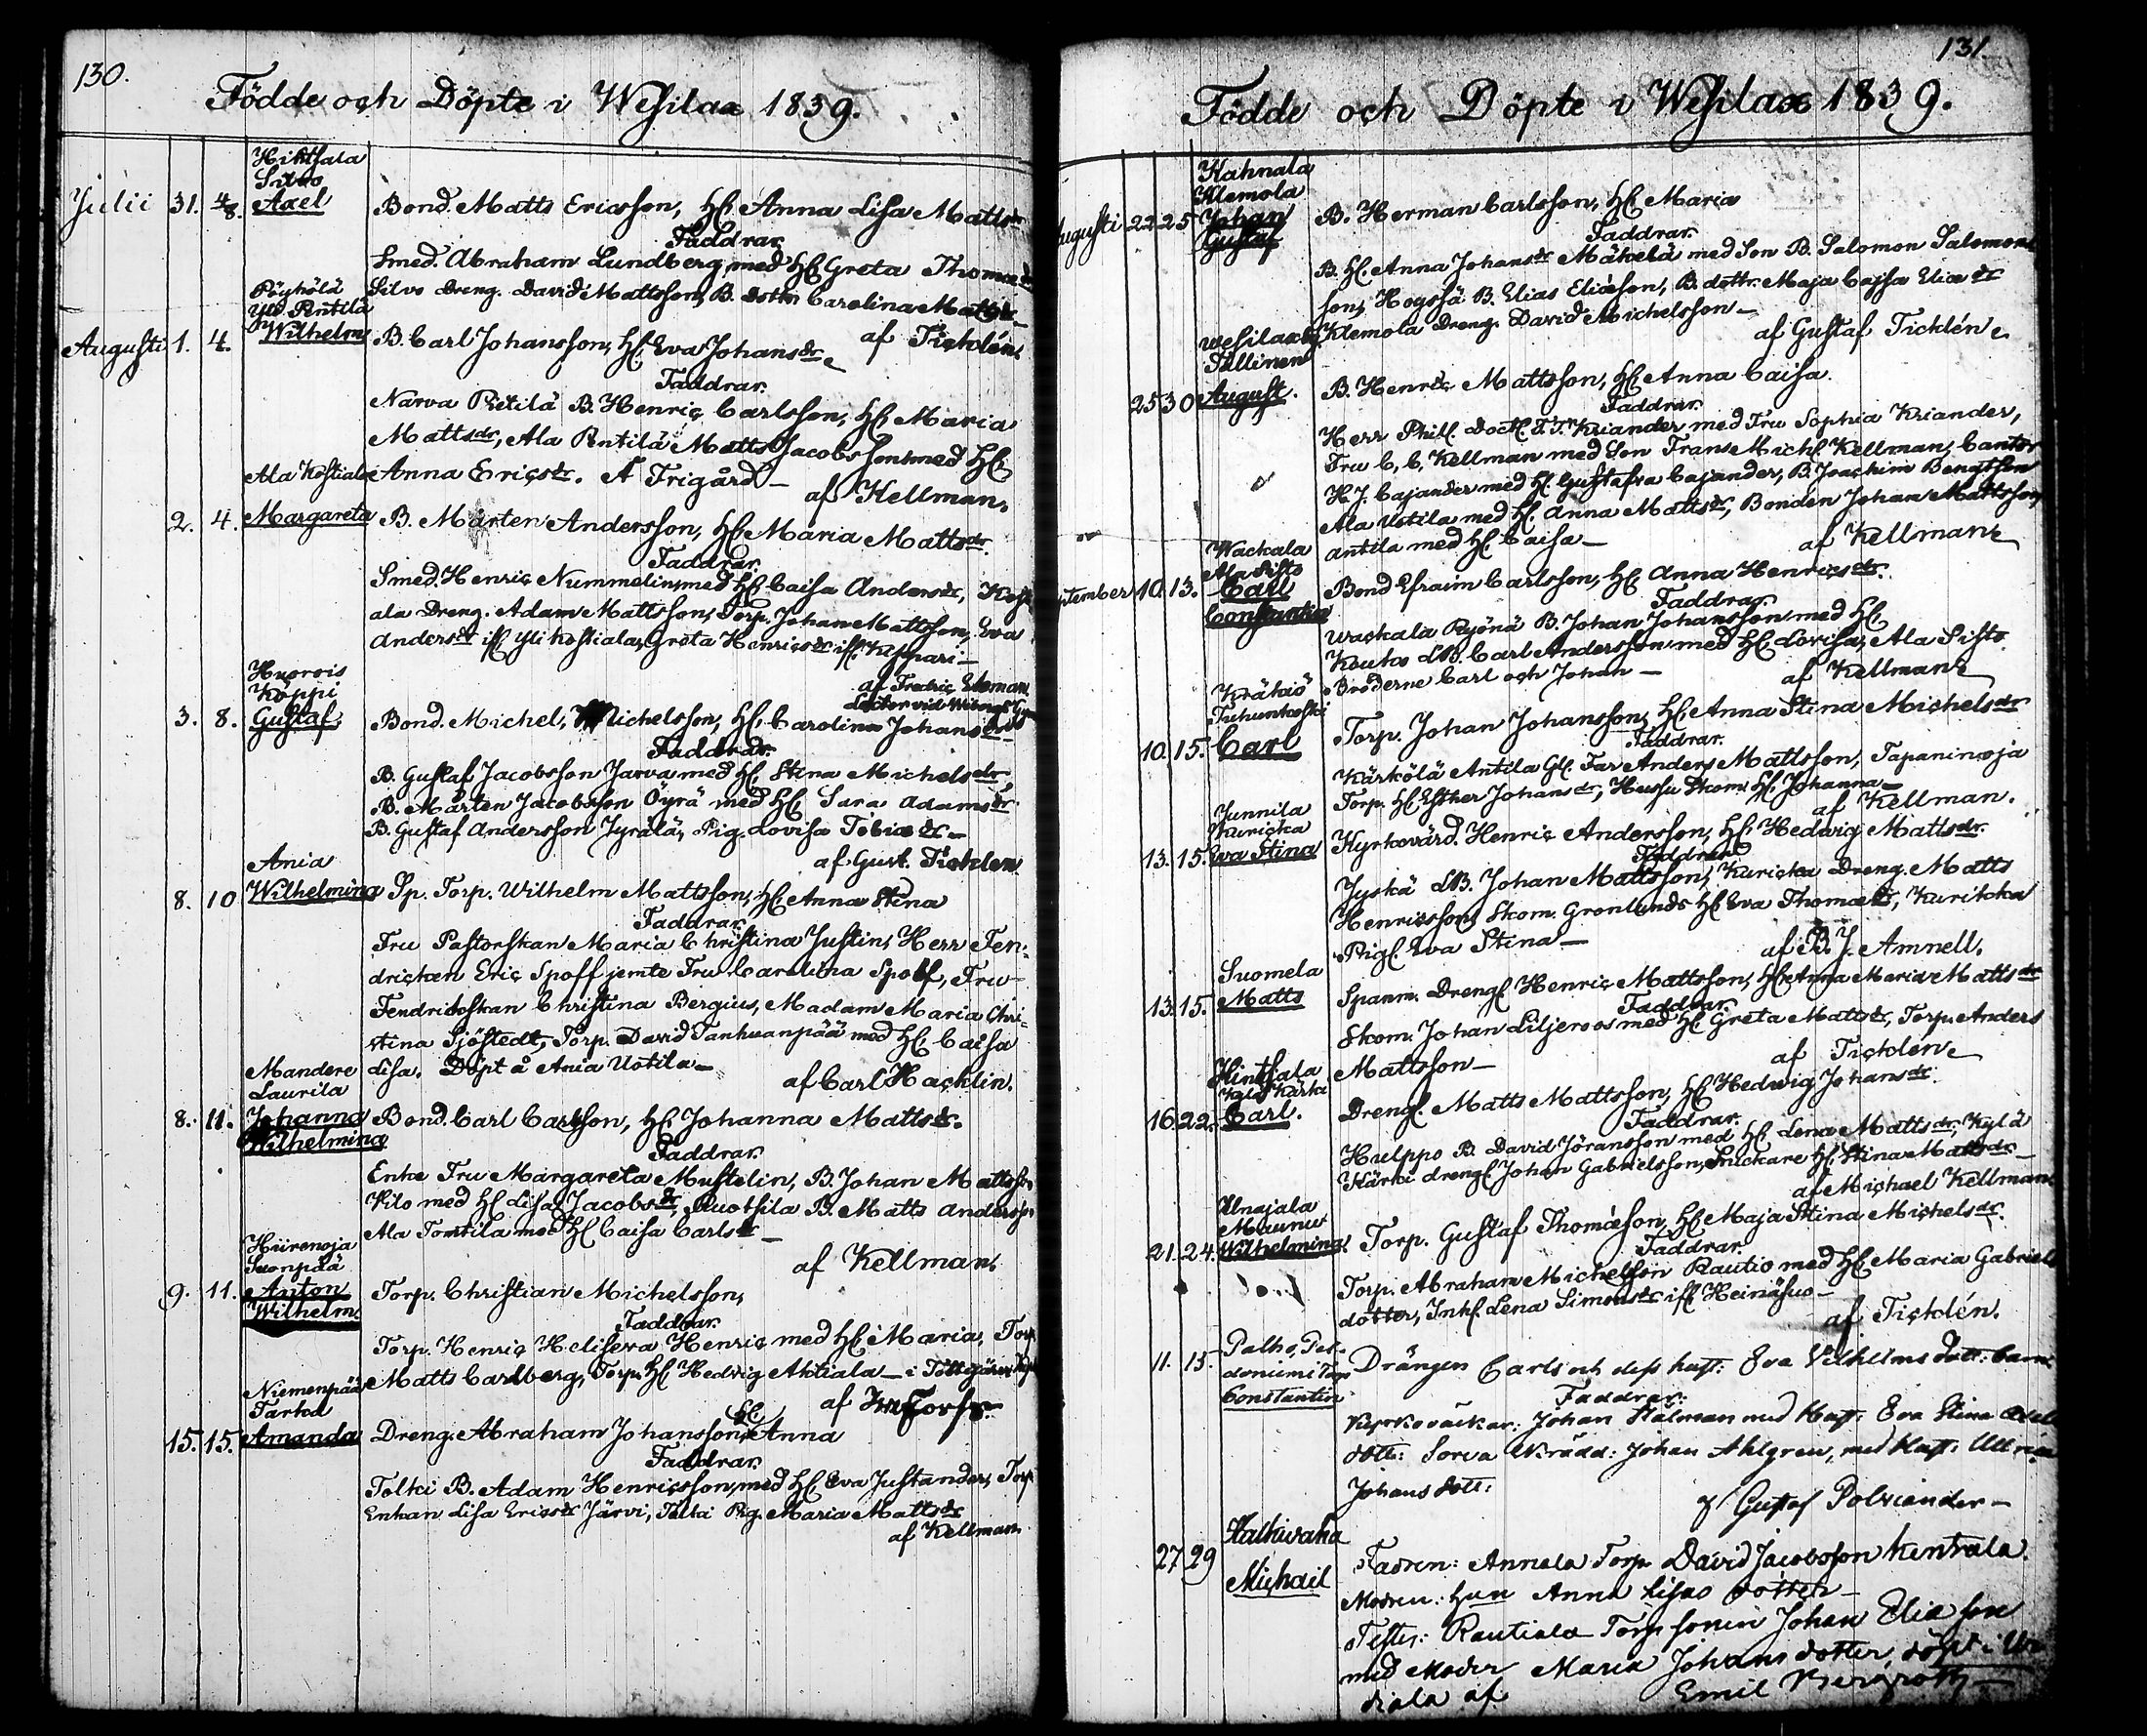 130.
Födde och Döpte i Wesilax 1839.
Hihtsala
Silvo
Julii 31. 4/8. Axel Bond. Matts Ericsson, H. Anna Lisa Mattsdr
Faddrar.
Smed. Abraham Lundberg med H. Greta Thomædr
Silvo Dreng. David Mattsson, B. dottr. Carolina Mattsdr
af Ticklén.
Pöyhölä
Yli Pentilä
Augusti 1. 4. Wilhelm B. Carl Johansson, H. Eva Johansdr
Faddrar.
Narva Pietilä B. Henric Carlsson, H. Maria
Mattsdr, Ala Pentilä Matts Jacobsson med H.
Anna Ericsdr. Å Frigård —
af Kellman.
Ala Kostiala
2. 4. Margareta B. Mårten Andersson, H. Maria Mattsdr.
Faddrar.
Smed. Henric Nummelin med H. Caisa Andersdr, Kosti
ala Dreng. Adam Mattsson, Torp. Johan Mattsson, Eva
Andersdr ifr. Yli Kostiala, Greta Henricsdr ifr.
af Fredric Ekman
Lector vid
Huovois
Köppi
3. 8. Gustaf Bond. Michel Michelsson, H. Carolina Johansdr
Faddrar.
B. Gustaf Jacobsson Jarva med H. Stina Michelsdr
B. Mårten Jacobsson Öyrä med H. Sara Adamsdr
B. Gustaf Andersson Jyrälä, Pig. Lovisa Tobiædr —
af Gust. Ticklén
Ania
8. 10 Wilhelmina Sp. Torp. Wilhelm Mattsson, H. Anna Stina
Faddrar.
Fru Pastorskan Maria Christina Justin, Herr Fen-
drickan Eric Spoff jemte Fru Carolina Spoff, Fru
Fendrickskan Christina Bergius, Madam Maria Chri-
stina Sjöstedt, Torp. David Tanhuanpää med H. Caisa
Lisa. Döpt å Ania Uotila —
af Carl Hacklin.
Mandere
Laurila
8. 11. Johanna Bond. Carl Carlsson, H. Johanna Mattsdr.
Wilhelmina
Faddrar.
Enke Fru Margareta Mustelin, B. Johan Mattsson
Kilo med H. Lisa Jacobsdr, Ruotsila B. Matts Andersson
Ala Tontila med H. Caisa Carlsdr —
af Kellman.
Hiirenoja
Suonpää
9. 11. Anton Torp. Christian Michelsson,
Wilhelm.
Faddrar.
Torp. Henric Heliseva Henric med H. Maria, Torp.
Matts Carlberg, Torp. H. Hedvig Ahtiala — i Tottijärvi
af
Niemenpää
Tarka
15. 15. Amanda Dreng. Abraham Johansson, H. Anna
Faddrar.
Tolki B. Adam Henricsson med H. Eva Justander, Torp
Enkan Lisa Ericsdr Järvi, Tolki Pig. Maria Mattsdr
af Kellman
131.
Födde och Döpte i Wesilax 1839.
Kahnala
Klemola
Augusti 22. 25 Johan B. Herman Carlsson, H. Maria
Gustaf
Faddrar.
B. H. Anna Johansdr Mäkelä med Son B. Salomon Salomons
son, Hogossä B. Elias Eliæson, B. dottr. Maja Cajsa Eliædr
Klemola Dreng. David Michelsson —
af Gustaf Ticklén
Wesilaxby
Pällinen
25 30 August. B. Henric Mattsson, H. Anna Caisa.
Faddrar.
Herr Phill. Doct. F. T. Kriander med Fru Sophia Kriander,
Fru C. C. Kellman med Son Frans Mich. Kellman, Cantor
H. J. Cajander med H. Gustafva Cajander, B. Joachim Bengtsson
Ala Uotila med H. Anna Mattsdr, Bonden Johan Mattsson,
Antila med H. Caisa —
af Kellman
Wackala
Ala Sifto
September 10. 13. Carl Bond Efraim Carlsson, H. Anna Henricsdr.
Constantin
Faddrar.
Wackala Ryönä B. Johan Johansson med H.
Kouto dB. Carl Andersson med H. Lovisa, Ala Sifto
Bröderne Carl och Johan —
af Kellman
Kräkiö
Tuhunkoski
10. 15. Carl Torp. Johan Johansson, H. Anna Stina Michelsdr
Faddrar.
Kärkölä Antila Gl. Far Anders Mattsson, Tapaninoja
Torp. H. Esther Johansdr, Hussu Skom. H. Johanna —
af Kellman.
Junnila
Kuricka
13. 15. Eva Stina Kyrkovärd. Henric Andersson, H. Hedwig Mattsdr.
Faddrar
Jyskä dB. Johan Mattsson, Kuricka Dreng. Matts
Henricsson, Skom. Gronlunds H. Eva Thomædr, Kuricka
Pig. Eva Stina —
af B. J. Amnell.
Suomela
13. 15. Matts Spanm. Dreng. Henric Mattsson, H. Anna Maria Mattsdr
Faddrar.
Skom. Johan Liljeroos med H. Greta Mattsdr, Torp. Anders
Mattsson —
af Ticklén
Hintsala
Kylä Kärki
16. 22. Carl. Dreng. Matts Mattsson, H. Hedwig Johansdr.
Faddrar.
Hulppo B. David Jöransson med H. Lena Mattsdr, Kylä
Kärki dreng. Johan Gabrielsson, Snickare H. Stina Mattsdr —
af Michael Kellman
Unajala
Maunu
21. 24. Wilhelmina Torp. Gustaf Thomæson, H. Maja Stina Michelsdr.
Faddrar.
Torp. Abraham Michelsson Rautio med H. Maria Gabriels
dotter, Inh. Lena Simonsdr ifr. Heinäsuo —
af Ticklén.
Palho, Pas-
11. 15. Drängen Carl och dess hust: Eva Vilhelms dott: barn
Constantin
Faddrar:
Kyrkoväckar: Johan Stålman med Hust: Eva Stina
dott: Sorva Johan Ahlgren, med Hust: Ulrica
Johans dott:
af Gustaf Polviander —
Halkivaha
27 29 Michail Fadren: Annala Torp. David Jacobsson Kentrala.
Modren: Anna Lisas dotter —
Testes: Rautiala Torp sonen Johan Eliæson
med Moder Maria Johans dotter, döpt i Ur-
diala af Emil Bergroth —